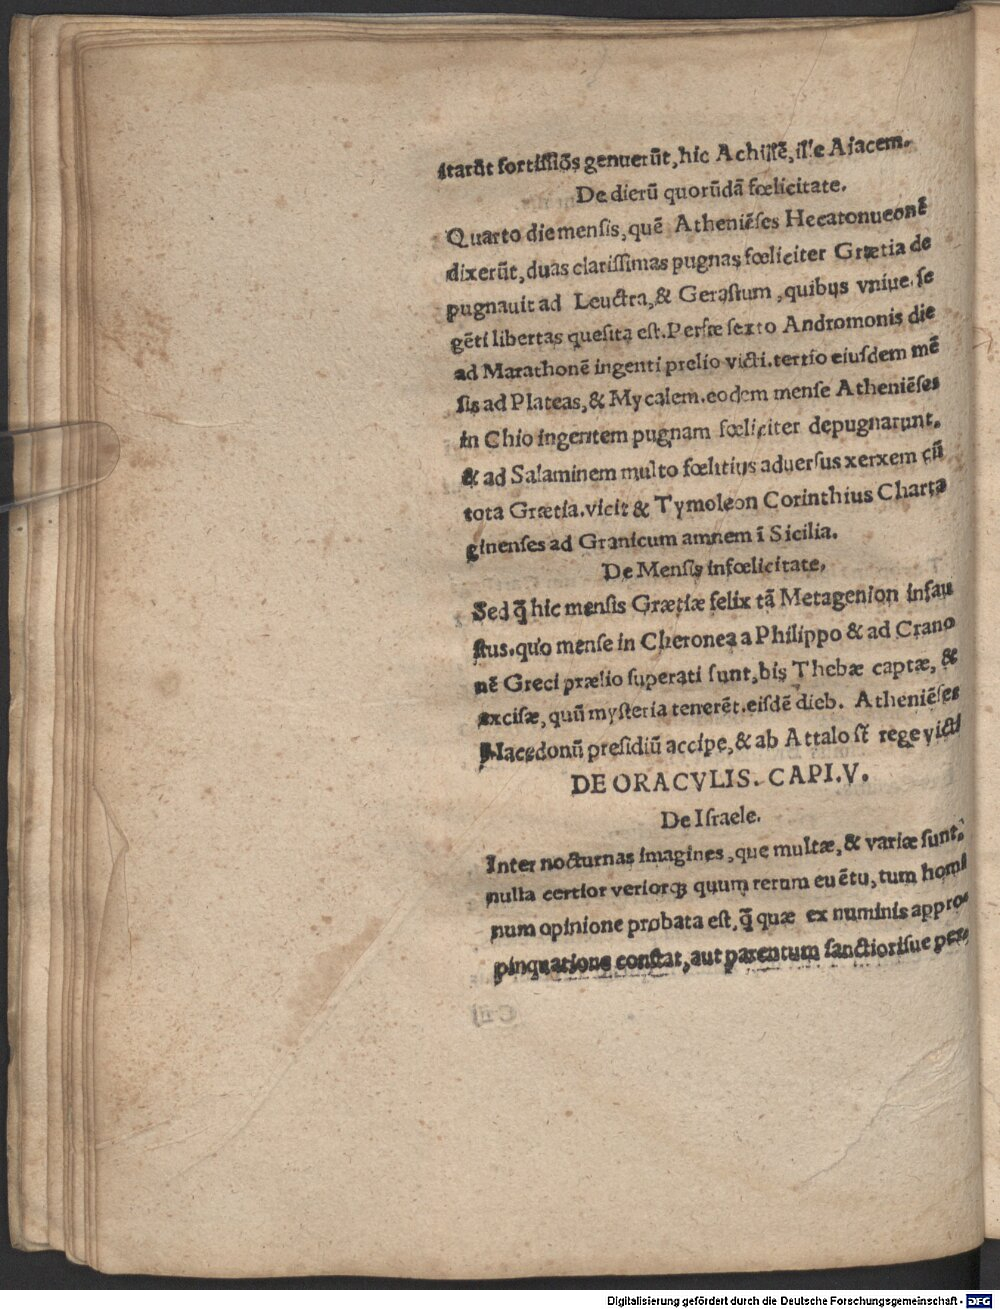 itarūt fortissiōs genuerūt, hic Achillē, ille Aiacem.
De dierū quorūdā fœlicitate.
Quarto die mensis, quē Atheniēses Hecatonueonē
dixerūt, duas clarissimas pugnas fœliciter Grætia de
pugnauit ad Leuctra, & Gerastum, quibus vniue. se
gēti libertas quesita est. Persæ sexto Andromonis die
ad Marathonē ingenti prelio victi. tertio eiusdem mē
sis ad Plateas, & Mycalem. eodem mense Atheniēses
in Chio ingentem pugnam fœliciter depugnarunt.
& ad Salaminem multo fœlitius aduersus xerxem cū
tota Grætia. vicit & Tymoleon Corinthius Charta
ginenses ad Granicum amnem ī Sicilia.
De Mensis infœlicitate,
Sed q̄ hic mensis Grætiæ felix tā Metagenion infau
stus. quo mense in Cheronea a Philippo & ad Crano
nē Greci prælio superati sunt, bis Thebæ captæ, &
excisæ, quū mysteria tenerēt. eisdē dieb. Atheniēses
Macedonū presidiū accipe, & ab Attalo st̄ rege victi
DE ORACVLIS. CAPI. V.
De Israele.
Inter nocturnas imagines, que multæ, & variæ sunt,
nulla certior veriorq; quum rerum euētu, tum homi
num opinione probata est, q̄ quæ ex numinis appro
pinquatione constat, aut parentum sanctiorisue per
Digitalisierung gefördert durch die Deutsche Forschungsgemeinschaft - DFG